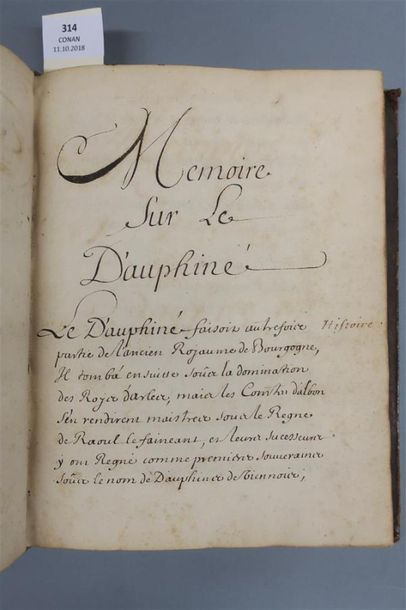 314
CONAN
11.10.2018
Memoire
Sur Le
D'auphiné
Le D'auphiné faisoit autrefois Histoire
partie de l'ancien Royaume de Bourgogne,
Il tomba ensuitte sous la domination
des Roys d'arles, mais les Comtes d'albon
s'en rendirent maistres sous le Regne
de Raoul le faineant, et leurs sucesseurs
y ont Regné comme premiers souverains
sous le nom de D'auphins de Viennois,